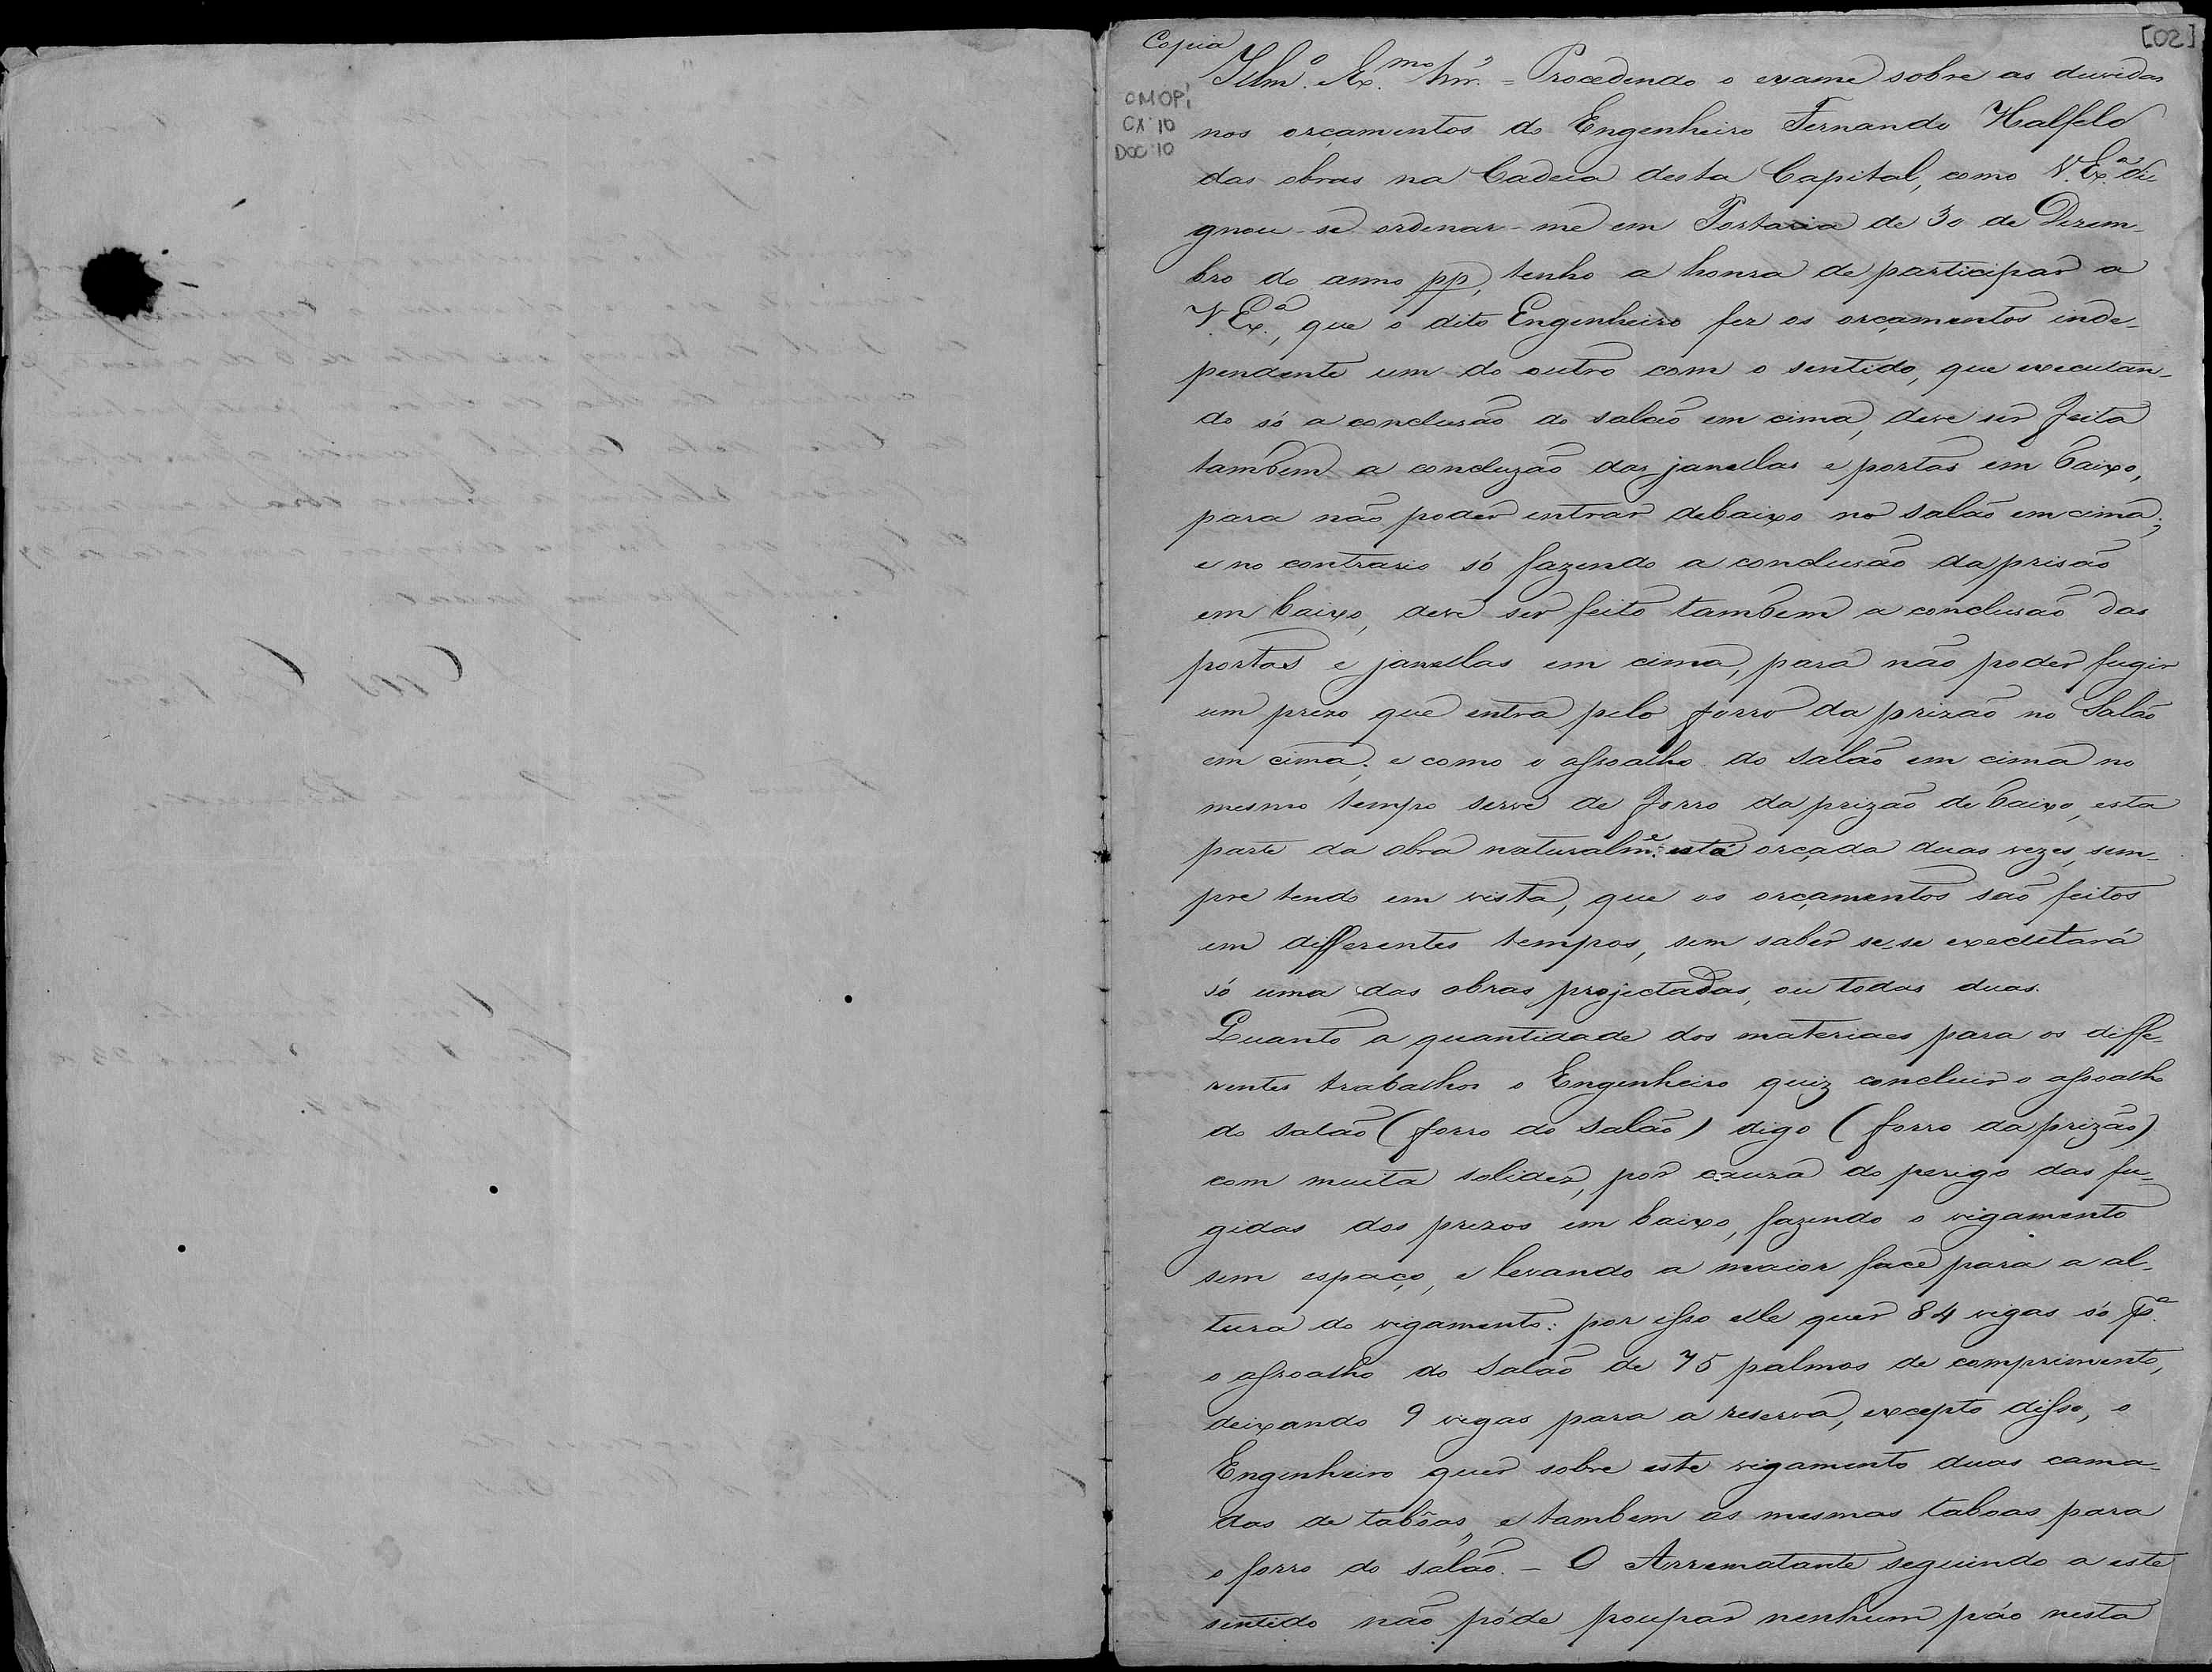 Copia
[02]
OMOP,
CX:10
DOC:10
Illm.º Ex.mo Snr. = Procedendo o exame sobre as duvidas
nos orçamentos do Engenheiro Fernando Halfeld
das obras na Cadeia desta Capital, como V. Ex.ª di-
gnou-se ordenar-me em Portaria de 30 de Dezem-
bro do anno pp, tenho a honra de participar a
V. Ex.ª, que o dito Engenheiro fez os orçamentos inde-
pendente um do outro com o sentido, que executan-
do só a conclusão do salão em cima, deve ser feita
tambem a concluzão das janellas e portas em baixo,
para não poder entrar debaixo no salão em cima;
e no contrario só fazendo a conclusão da prisão
em baixo, deve ser feito tambem a conclusão das
portas e janellas em cima, para não poder fugir
um prezo que entra pelo forro da prizão no Salão
em cima; e como o assoalho do salão em cima no
mesmo tempo serve de forro da prizão de baixo, esta
parte da obra naturalm.e está orçada duas vezes, sem-
pre tendo em vista, que os orçamentos são feitos
em differentes tempos, sem saber se-se executará
só uma das obras projectadas, ou todas duas.
Quanto a quantidade dos materiaes para os diffe-
rentes trabalhos o Engenheiro quiz concluir o assoalho
do salão (forro do salão) digo (forro da prizão)
com muita solidez, por cauza do perigo das fu-
gidas dos prezos em baixo, fazendo o vigamento
sem espaço, e levando a maior face para a al-
tura do vigamento: por isso elle quer 84 vigas só p.ª
o assoalho do Salão de 75 palmos de comprimento,
deixando 9 vigas para a reserva, excepto disso, o
Engenheiro quer sobre este vigamento duas cama-
das de tabôas, e tambem as mesmas taboas para
o forro do salão. - O Arrematante seguindo a este
sentido não póde poupar nenhum páo nesta